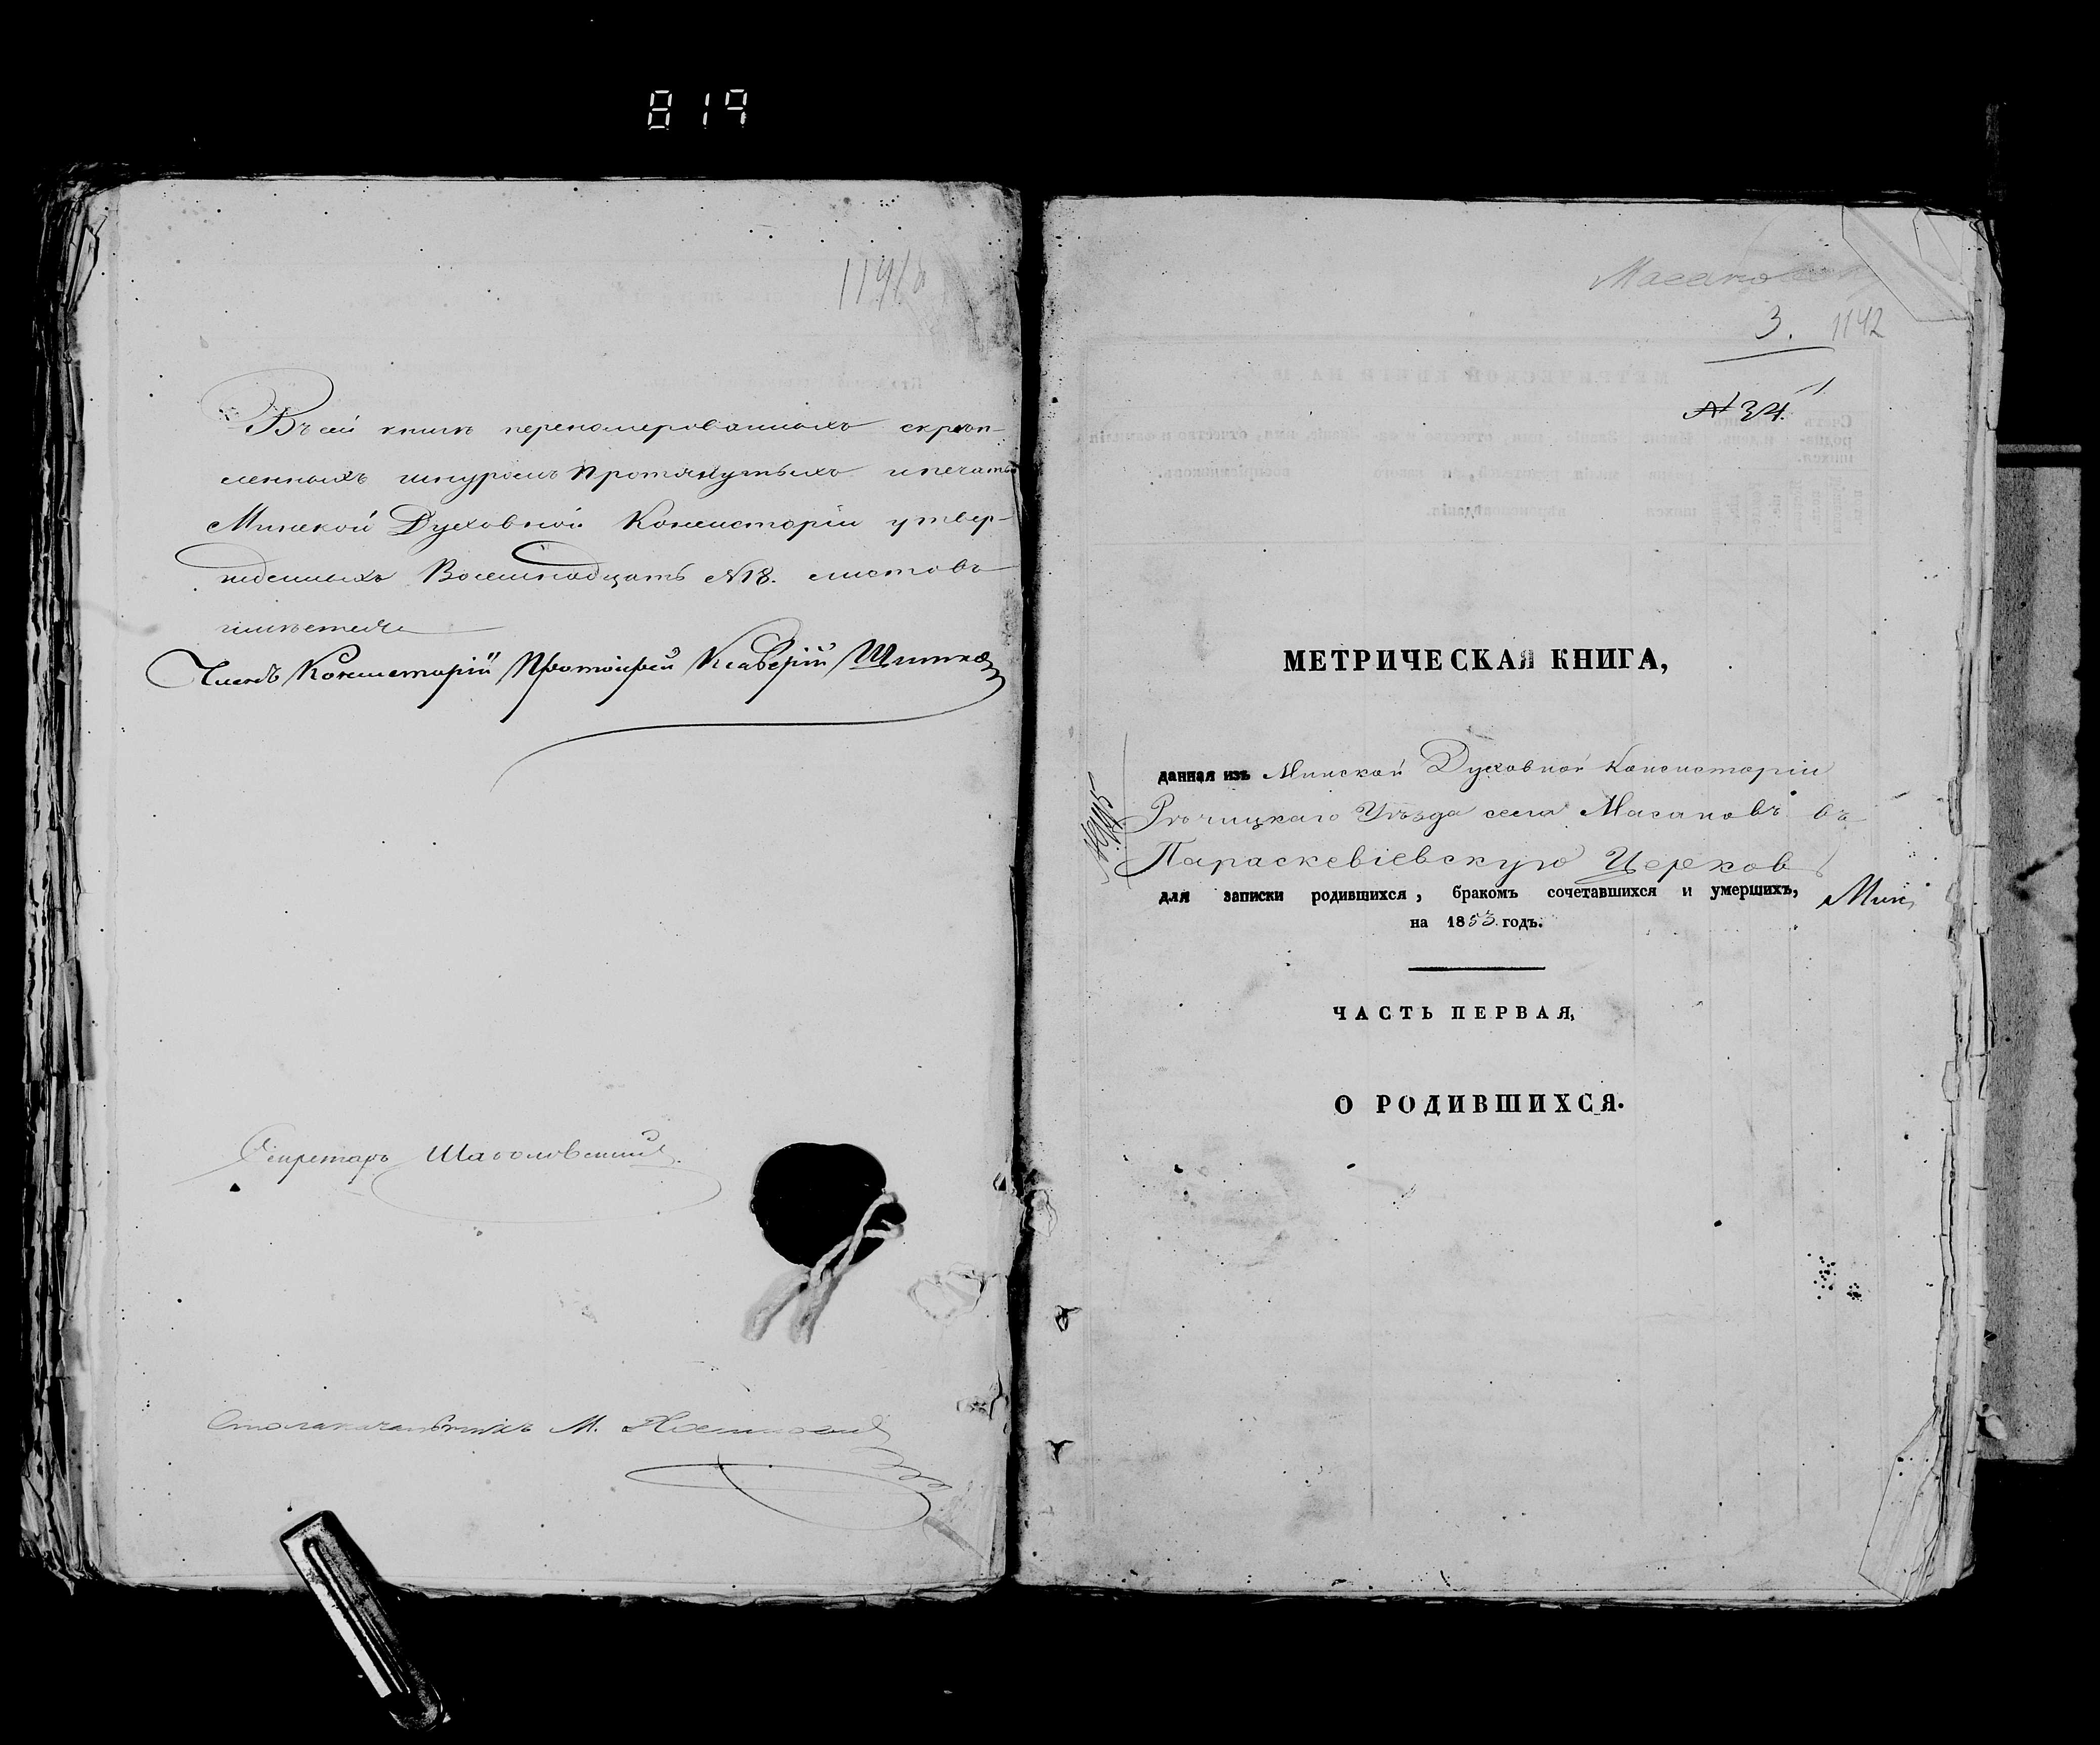 819
Въ сей книгѣ перенумерованныхъ скрѣп-
ленныхъ шнуромъ протянутыхъ и печатью
Минской Духовной Консисторіи утвер-
жденныхъ Восемнадцать №18. листовъ
имѣется
Членъ Консисторіи Протоіерей Ксаверій
Секретарь
Столоначальникъ М.
3. 1142
№34
МЕТРИЧЕСКАЯ КНИГА,
данная изъ Минской Духовной Консисторіи
Рѣчицкаго Уѣзда села Масановъ въ
Параскевіевскую Церковь
для записки родившихся, бракомъ сочетавшихся и умершихъ,
на 1853 годъ.
ЧАСТЬ ПЕРВАЯ,
О РОДИВШИХСЯ.